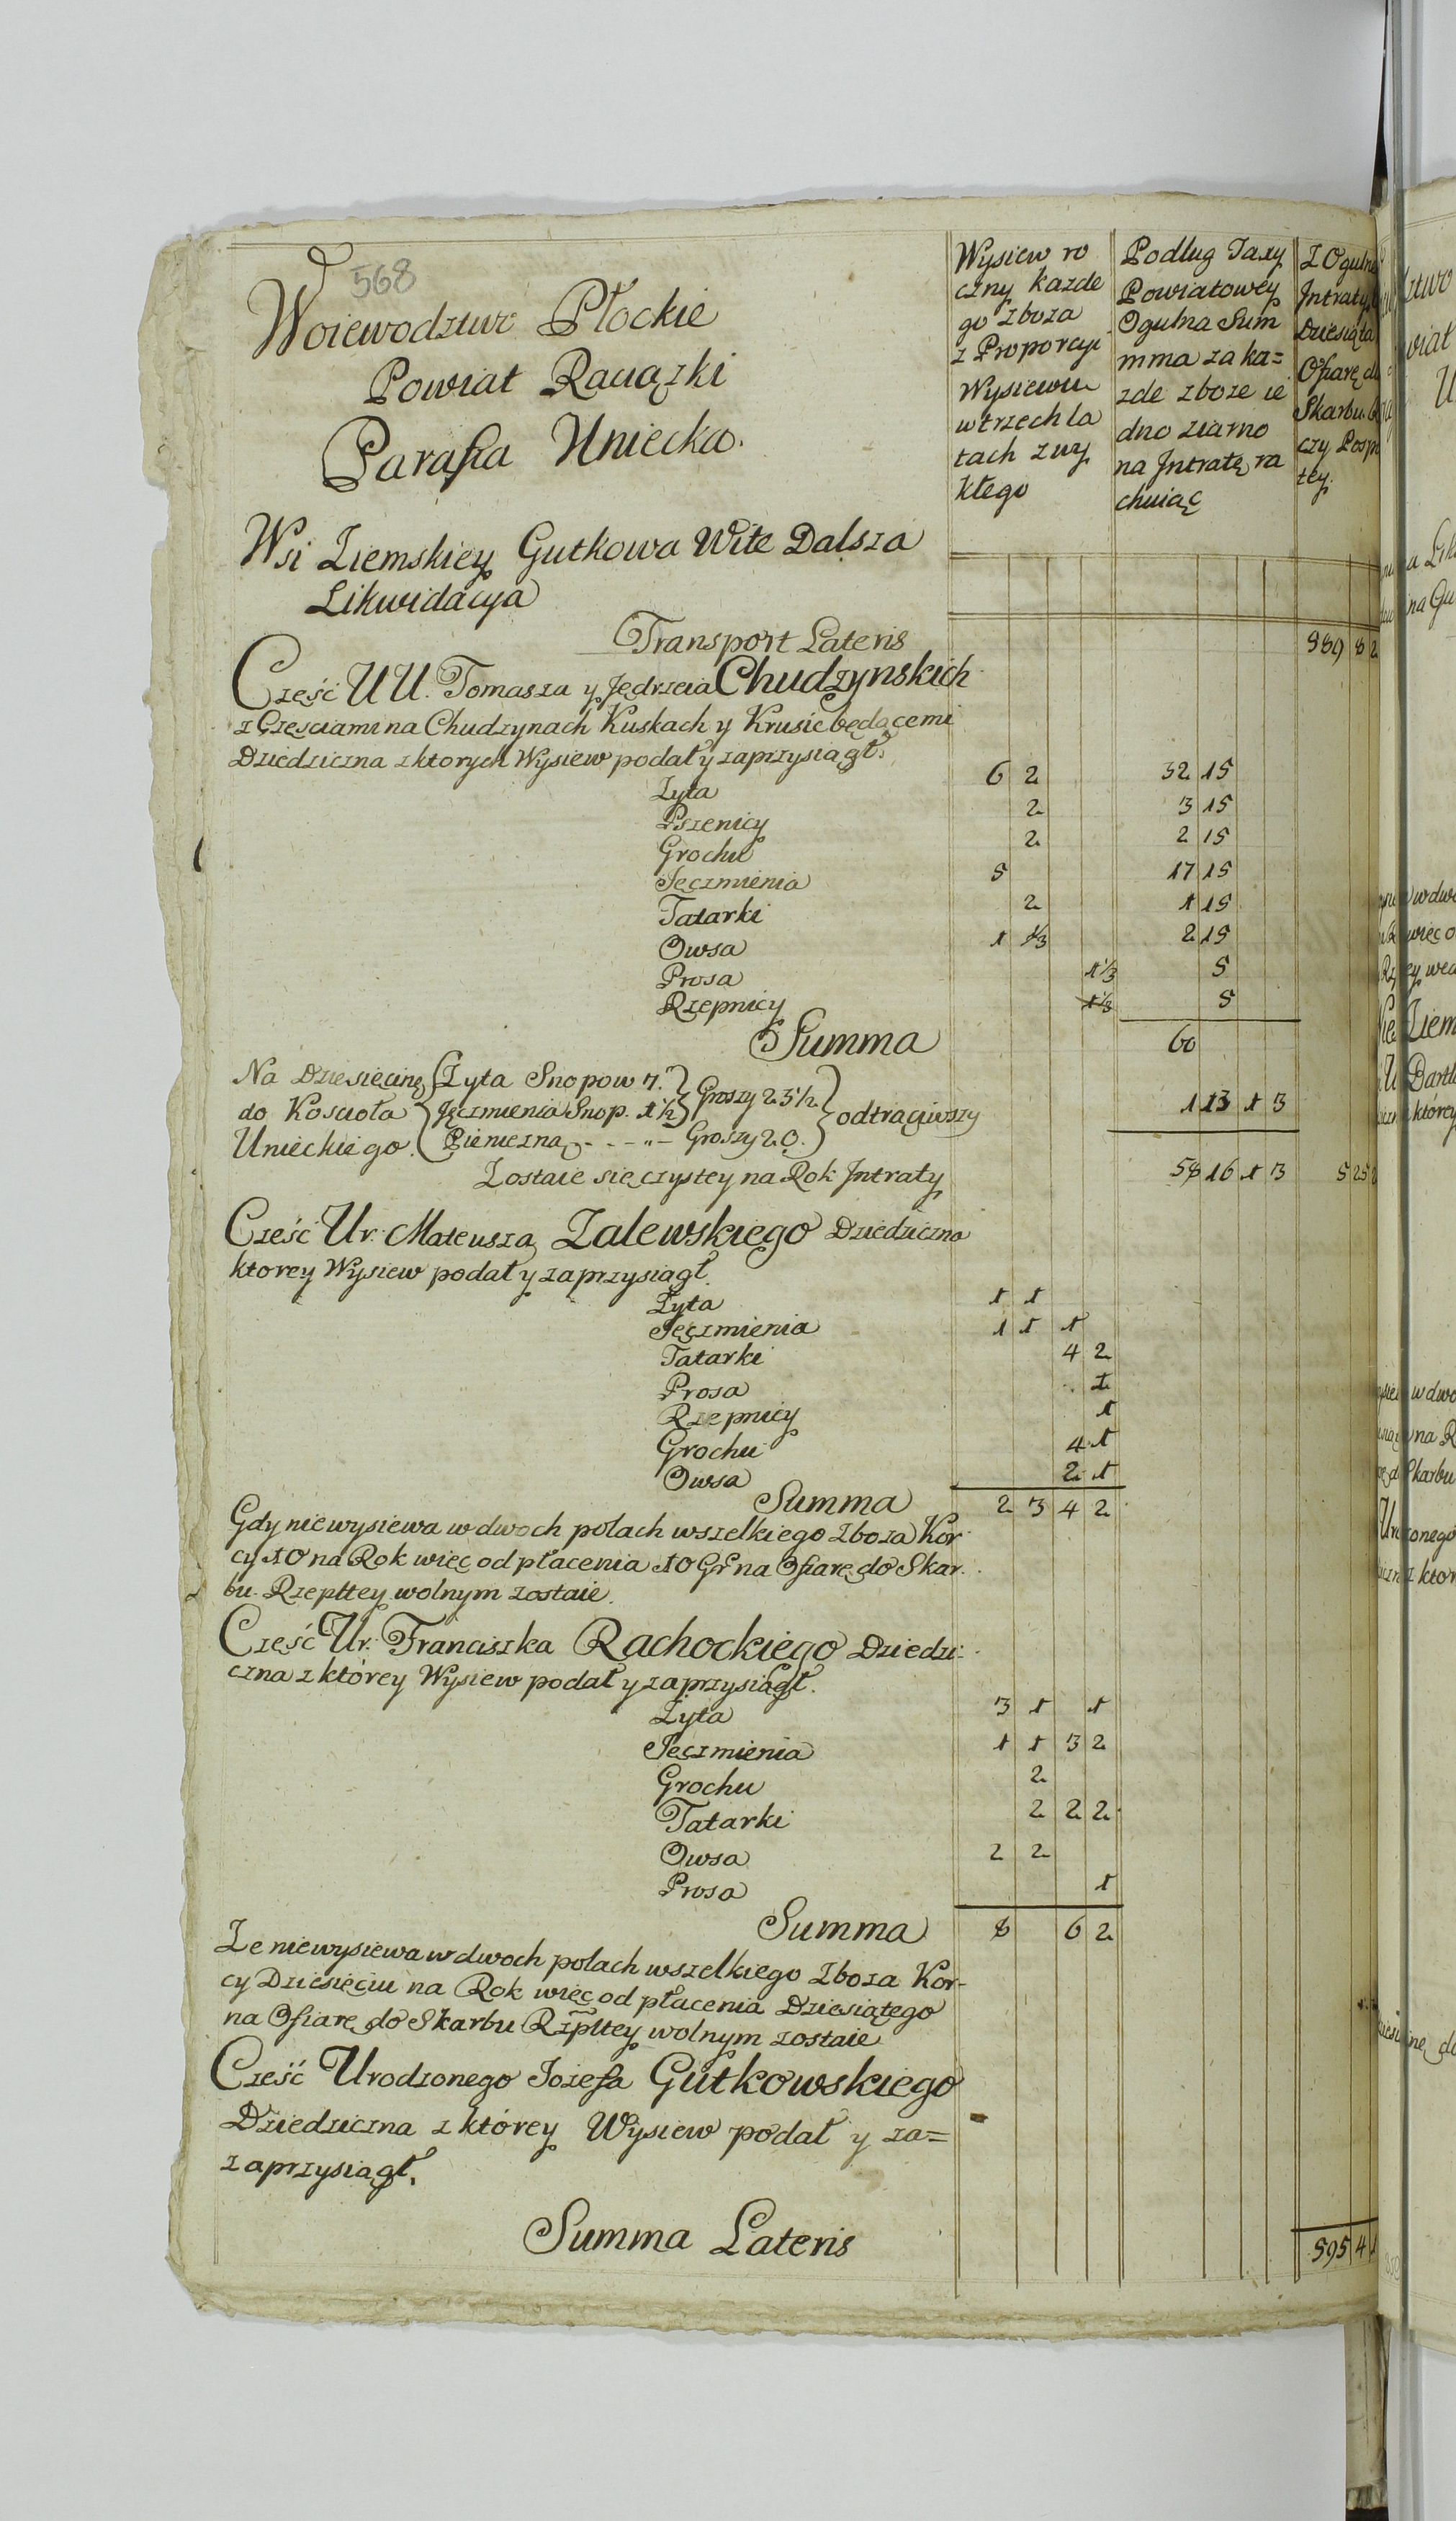 568
Woiewodztwo Płockie
Powiat Raciązki
Parafia Uniecka.
Wysiew ro
czny kazde
go zboza
z Proporcyi
Wysiewu
w trzech la
tach zwy
kłego
Podług Taxy
Powiatowey
Ogulna Sum
mma za ka=
zde zboze ie
dno ziarno
na Jntratę ra
chuiąc
Z Ogulne
Jntraty
Dziesiąta
Ofiarę do
Skarbu
czy Posp
tey.
Wsi Ziemskiey Gutkowa Wite Dalsza
Likwidacya
Transport Lateris 589 8 2
Częśc UU. Tomasza y Jędrzeia Chudzynskich
z Częsciami na Chudzynach Kuskach y Krusie będącemi
Dziedziczna z ktorych Wysiew podał y zaprzysiągł.
Zyta 6 2 32 15
Pszenicy 2 3 15
Grochu 2 2 15
Jęczmienia 5 17 15
Tatarki 2 1 15
Owsa 1 1/3 2 15
Prosa 1 1/3 5
Rzepnicy 1 1/3 5
Summa 60
Na Dziesięcinę Zyta Snopow 7. Groszy 23 1/2
do Koscioła Jęczmienia Snop. 1 1/2 odtrąciwszy 1 13 1 3
Unieckiego. Pieniczna - - - " - Groszy 20.
Zostaie się czystey na Rok Jntraty 58 16 1 3 5 25
Częśc Ur. Mateusza Zalewskiego Dziedziczna
ktorey Wysiew podał y zaprzysiągł.
Zyta 1 1
Jęczmienia 1 1 1
Tatarki 4 2
Prosa 1
Rzepnicy 1
Grochu 4 1
Owsa 2 1
Summa 2 3 4 2
Gdy niewysiewa w dwoch polach wszelkiego Zboza Kor
cy 10 na Rok więc od płacenia 10 Gr na Ofiarę do Skar.
bu Rzepltey wolnym zostaie.
Częśc Ur. Franciszka Rachockiego Dziedzi:
czna z którey Wysiew podał y zaprzysiągł.
Zyta 3 1 1
Jęczmienia 1 1 3 2
Grochu 2
Tatarki 2 2 2
Owsa 2 2
Prosa 1
Summa 8 6 2
Ze niewysiewa w dwoch polach wszelkiego Zboza Kor-
cy Dziesięciu na Rok więc od płacenia Dziesiątego
na Ofiarę do Skarbu Rzpltey wolnym zostaie
Cześć Urodzonego Jozefa Gutkowskiego
Dziedziczna z którey Wysiew podał y za=
zaprzysiągł.
Summa Lateris 595 4